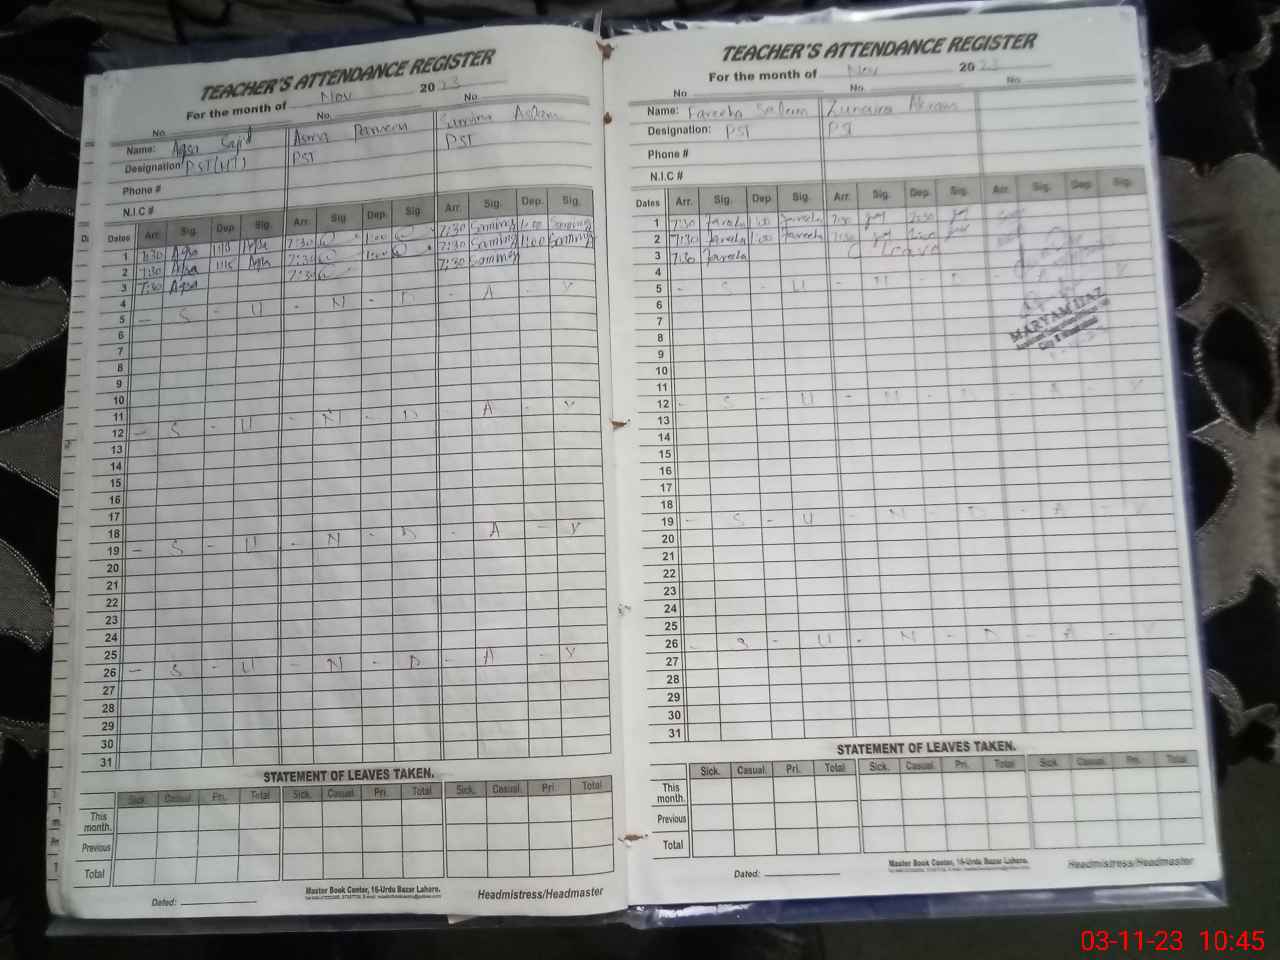 TEACHER'S ATTENDANCE REGISTER
For the month of Nov 2023
No. No. No.
Name: Aqsa Sajid Asma Parveen Samina Aslam
Designation: PST(HT) PST PST
Phone #
N.I.C #
Dates Arr. Sig. Dep. Sig. Arr. Sig. Dep. Sig. Arr. Sig. Dep. Sig.
1 7:30 Aqsa 1:15 Aqsa 7:30 1:00 7:30 Samina 1:00 Samina
2 7:30 Aqsa 1:15 Aqsa 7:30 1:00 7:30 Samina 1:00 Samina
3 7:30 Aqsa 7:30 7:30 Samina
4
5 - S - U - N - D - A - Y
6
7
8
9
10
11
12 - S - U - N - D - A - Y
13
14
15
16
17
18
19 - S - U - N - D - A - Y
20
21
22
23
24
25
26 - S - U - N - D - A - Y
27
28
29
30
31
STATEMENT OF LEAVES TAKEN.
Sick. Casual. Pri. Total Sick. Casual. Pri. Total Sick. Casual. Pri. Total
This month.
Previous
Total
Master Book Center, 16-Urdu Bazar Lahore.
Dated: Headmistress/Headmaster
TEACHER'S ATTENDANCE REGISTER
For the month of Nov 2023
No. No. No.
Name: Fareeha Saleem Zunaira Akram
Designation: PST PST
Phone #
N.I.C #
Dates Arr. Sig. Dep. Sig. Arr. Sig. Dep. Sig. Arr. Sig. Dep. Sig.
1 7:30 Fareeha 1:00 Fareeha 7:30
2 7:30 Fareeha 1:00 Fareeha 7:30
3 7:30 Fareeha C Leave
4
5 - S - U - N - D - A - Y
6
7
MARYAM IJAZ
8
9
10
11
12 - S - U - N - D - A - Y
13
14
15
16
17
18
19 - S - U - N - D - A - Y
20
21
22
23
24
25
26 - S - U - N - D - A - Y
27
28
29
30
31
STATEMENT OF LEAVES TAKEN.
Sick. Casual. Pri. Total Sick. Casual. Pri. Total Sick. Casual. Pri. Total
This month.
Previous
Total
Master Book Center, 16-Urdu Bazar Lahore.
Dated: Headmistress/Headmaster
03-11-23 10:45